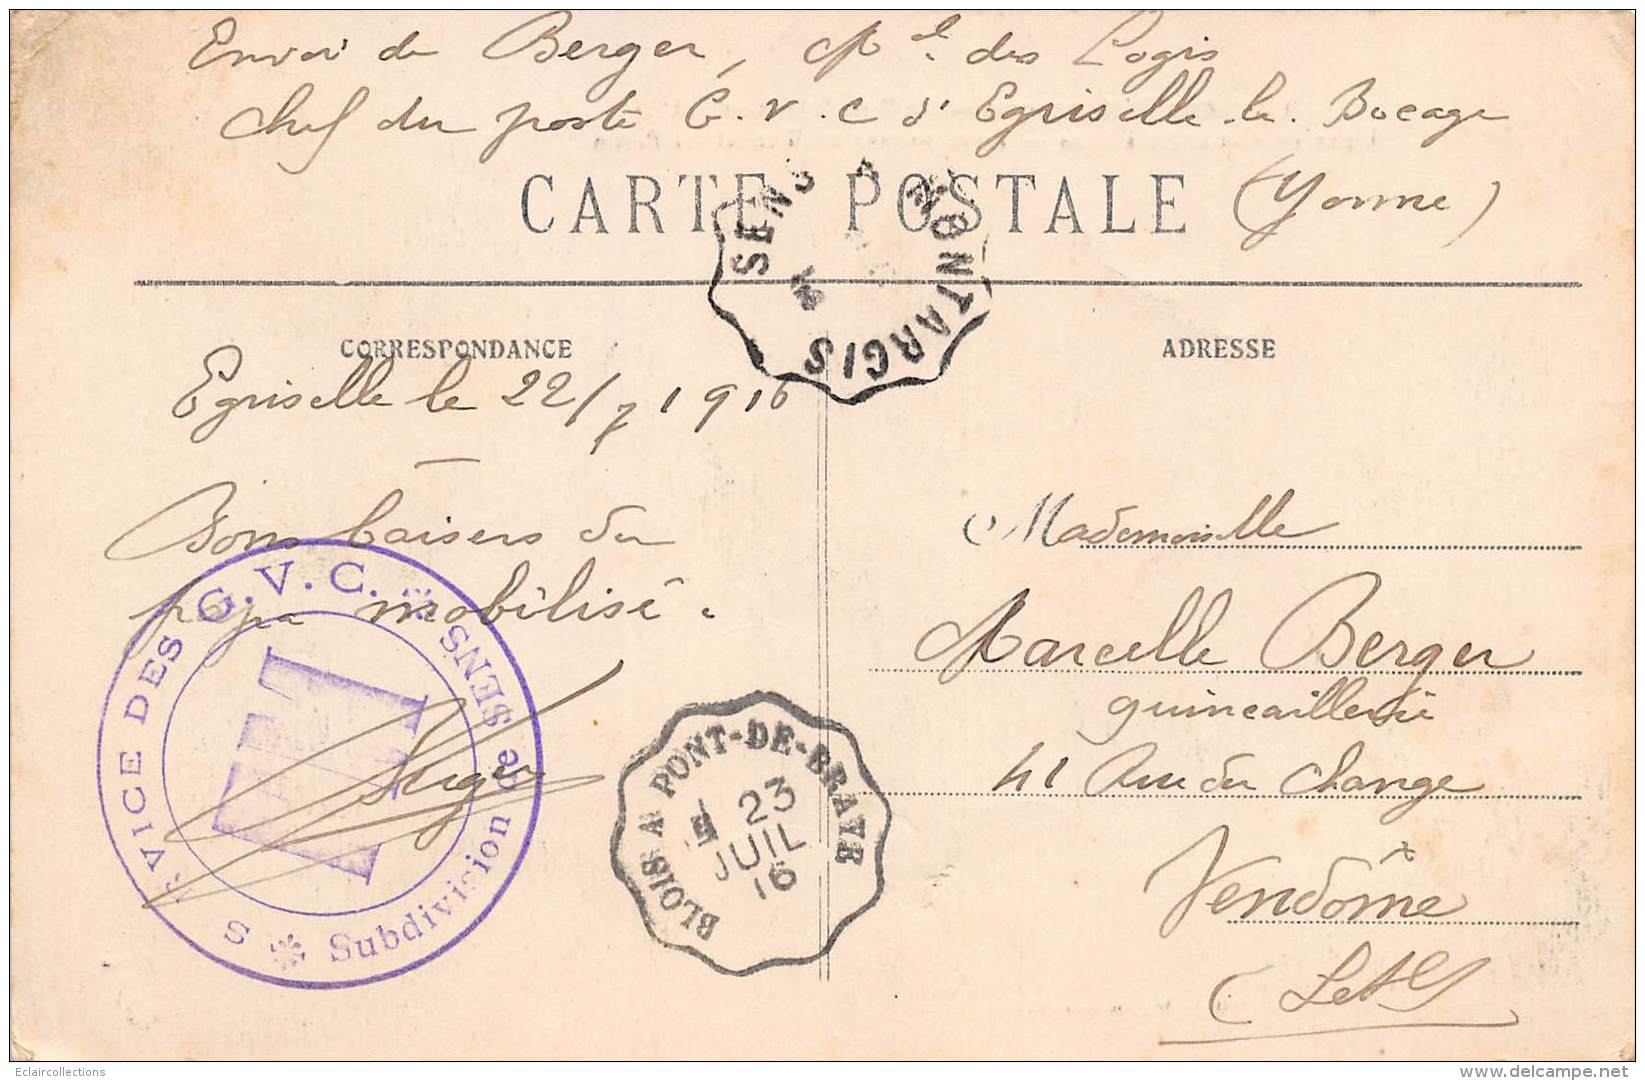 Envoi de Berger, Mal des Logis
Chef du poste G.V.C d'Egriselle-le-Bocage
(Yonne)
CARTE POSTALE
SENS A MONTARGIS
CORRESPONDANCE
Egriselle le 22/7 1916
Bons baisers du
papa mobilisé.
Berger
SERVICE DES G.V.C. * SENS *
Subdivision de
BLOIS A PONT-DE-BRAYE
23
JUIL
16
ADRESSE
Mademoiselle
Marcelle Berger
quincaillerie
41 Rue du Change
Vendôme
(L et C)
Eclaircollections
www.delcampe.net